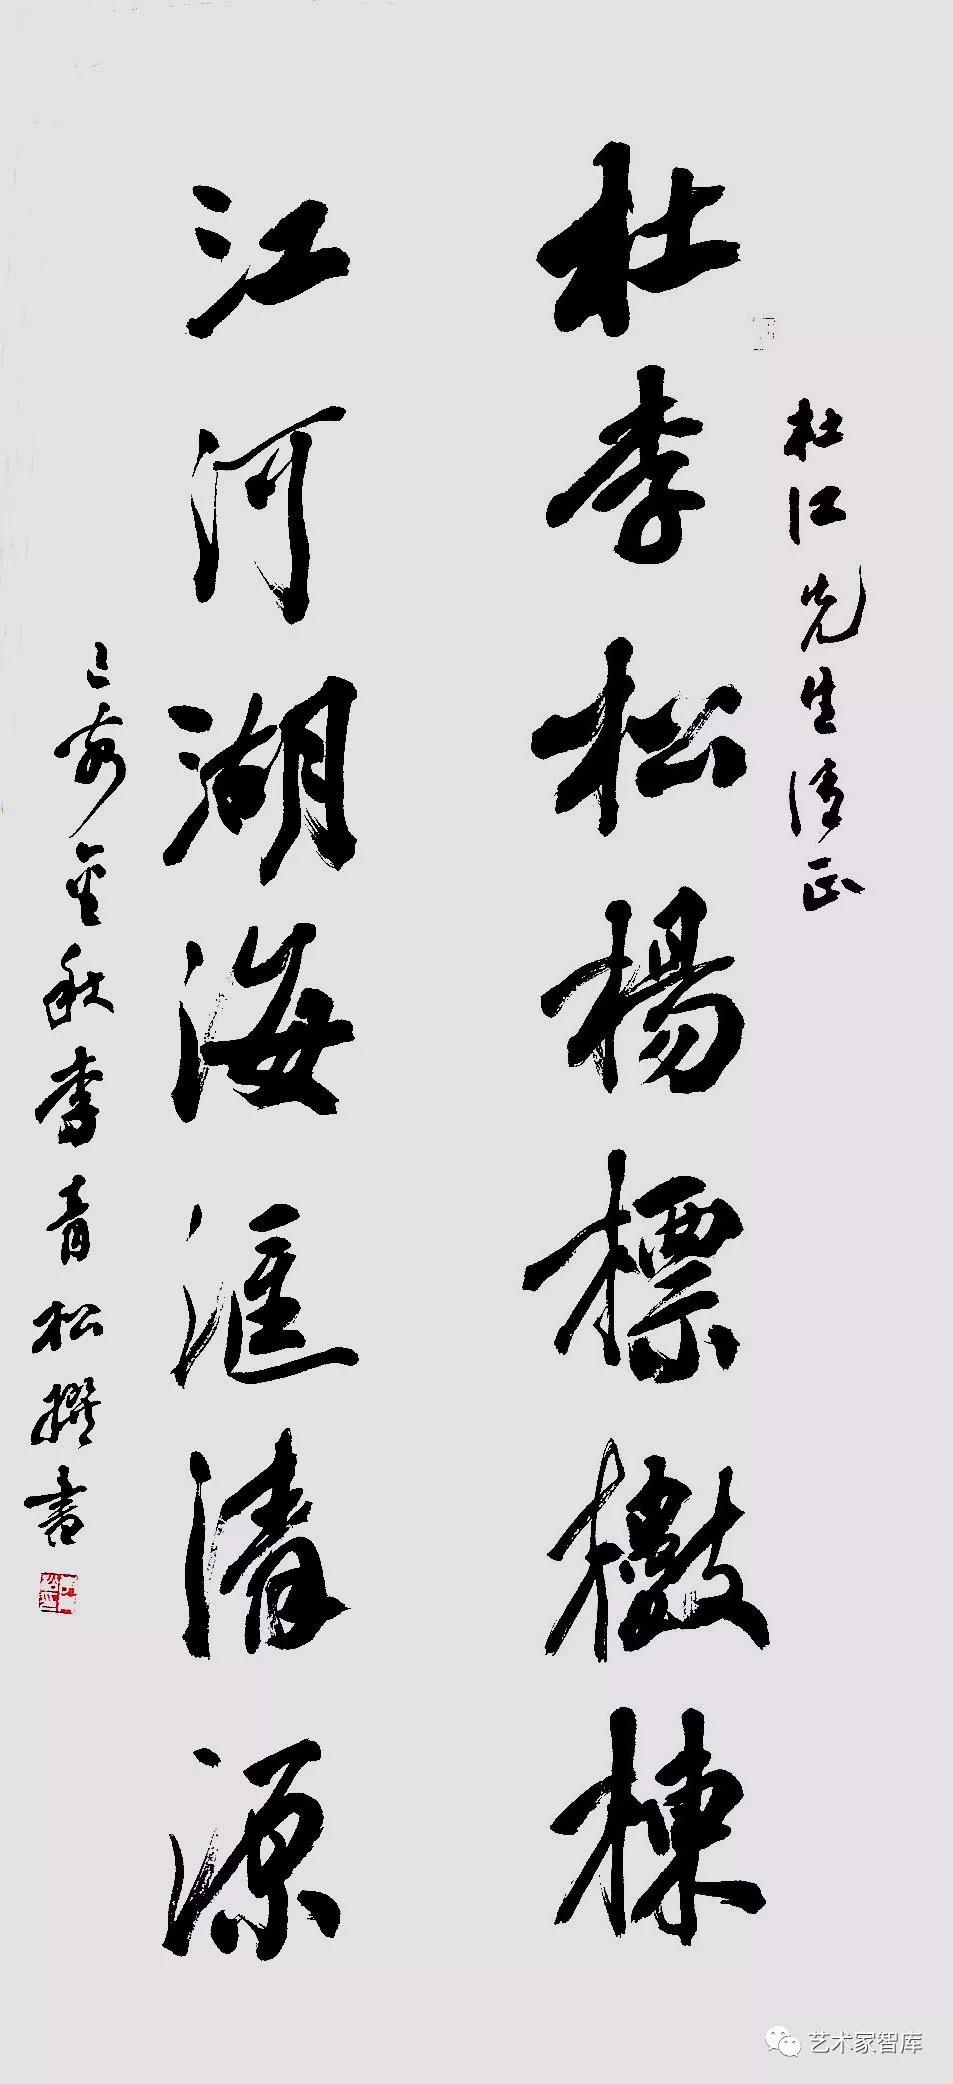 杜江先生清正
杜李松楊標檄棟
江河湖海滙清源
己亥金秋李青松撰書
艺术家智库